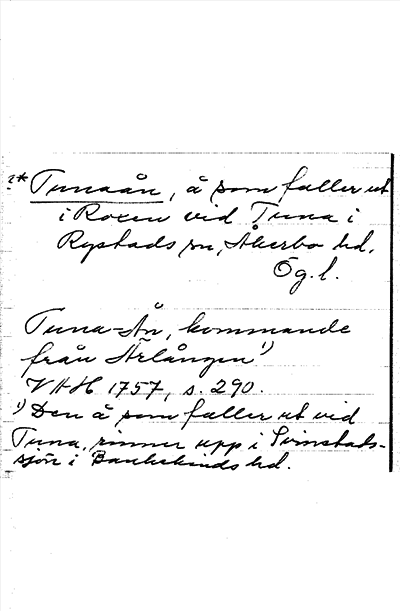 ?* Tunaån, å som faller ut
i Roxen vid Tuna i
Rystads sn, Åkerbo hd,
Ög. l.
Tuna-Ån, kommande
från Ärlången 1)
VAH 1757, s. 290.
1) Den å som faller ut vid
Tuna, rinner upp i Svinstads-
sjön i Bankekinds hd.